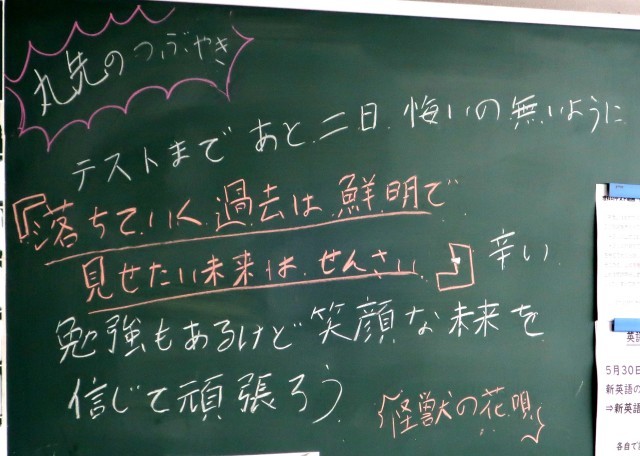 丸先のつぶやき
テストまであと二日 悔いの無いように
『落ちていく過去は鮮明で
見せたい未来は せんさい』 辛い
勉強もあるけど笑顔な未来を
信じて頑張ろう
怪獣の花唄
5月30日
新英語の
⇒新英語